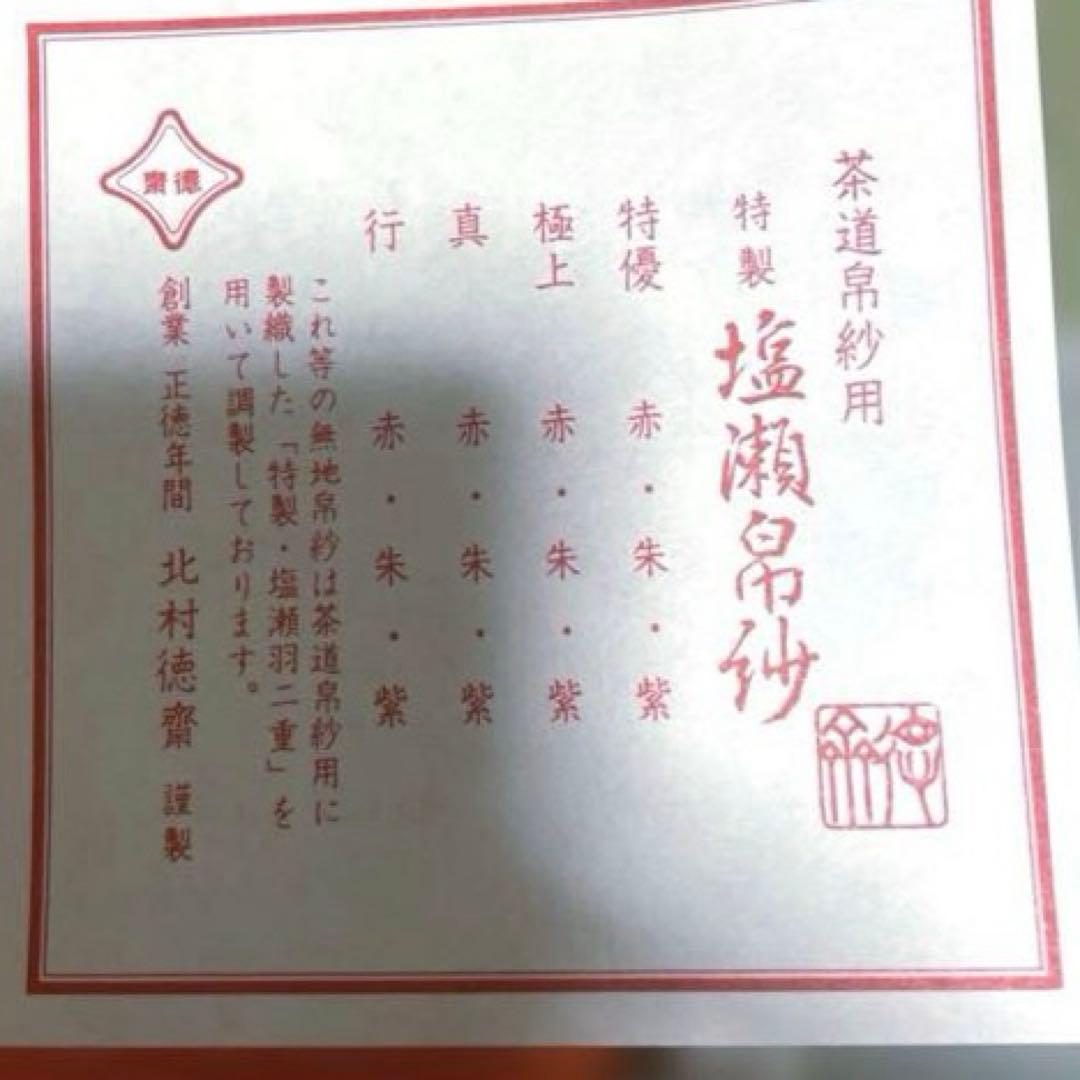 茶道帛紗用
特製 塩瀬帛紗
德齋
特優 赤・朱・紫
極上 赤・朱・紫
真 赤・朱・紫
行 赤・朱・紫
これ等の無地帛紗は茶道帛紗用に
製織した「特製・塩瀬羽二重」を
用いて調製しております。
德齋
創業 正徳年間 北村徳齋 謹製